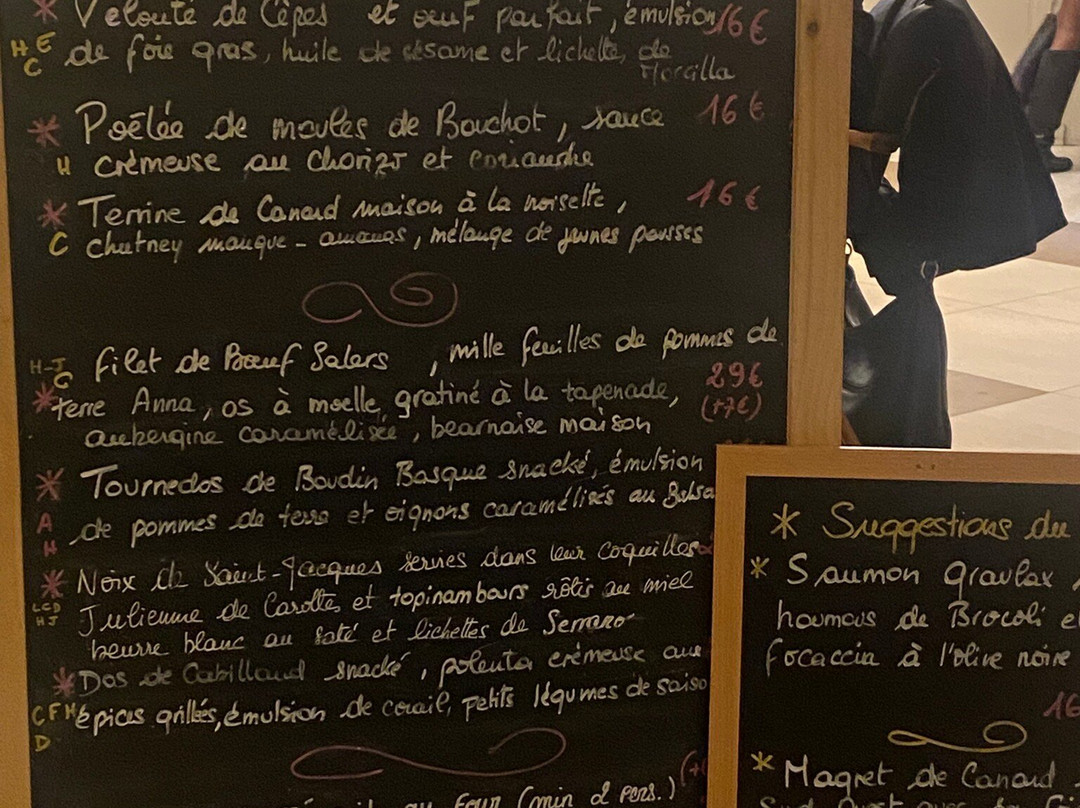 * Velouté de Cèpes et oeuf parfait, émulsion 16€
H E C de foie gras, huile de sésame et lichette, de
Morcilla
* Poêlée de moules de Bouchot, sauce 16€
H crémeuse au chorizo et coriandre
* Terrine de Canard maison à la noisette, 16€
C chutney mangue - ananas, mélange de jeunes pousses
H-J C filet de Bœuf Salers, mille feuilles de pommes de
* terre Anna, os à moelle, gratiné à la tapenade, 29€
aubergine caramélisée, bearnaise maison (+7€)
* Tournedos de Boudin Basque snacké, émulsion
A H de pommes de terre et oignons caramélisés au Balsa
* Noix de Saint-Jacques servies dans leur coquilles
LCD HJ Julienne de Carottes et topinambours rôtis au miel
beurre blanc au saté et lichettes de Serrano
* Dos de Cabillaud snacké, polenta crémeuse aux
CFH D épices grillés, émulsion de corail, petits légumes de saiso
au four (min 2 pers.) (+
* Suggestions du
* Saumon gravlax,
houmous de Brocoli e
focaccia à l'olive noire
16
* Magret de Canard